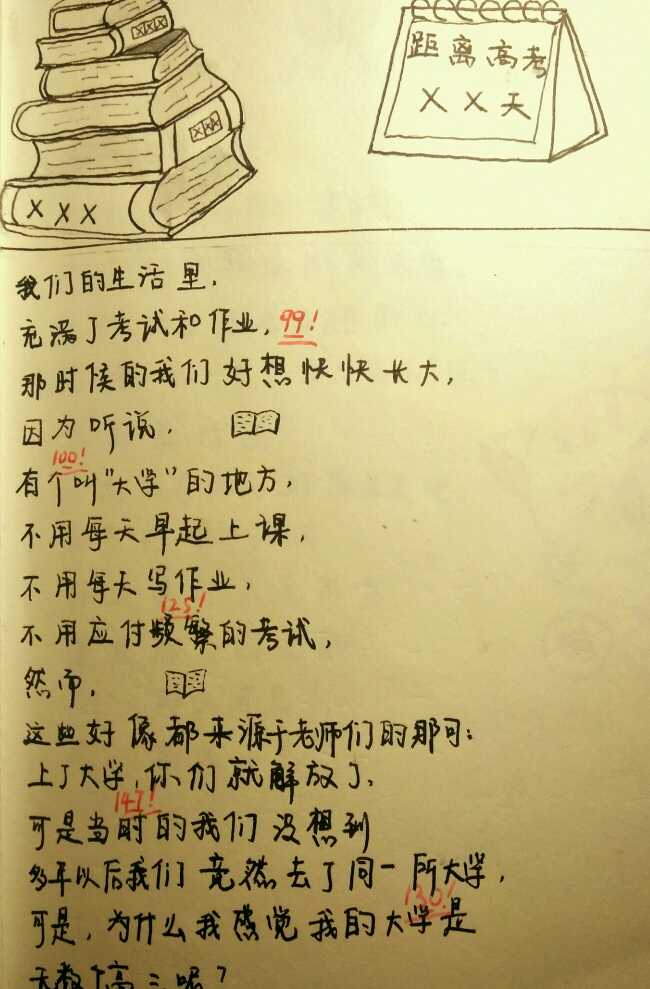 XXX
XXX
XXX
距离高考
XX天
我们的生活里，
充满了考试和作业，99！
那时候的我们好想快快长大，
因为听说，
100！
有个叫“大学”的地方，
不用每天早起上课，
不用每天写作业，
125！
不用应付频繁的考试，
然而，
这些好像都来源于老师们的那句：
上了大学，你们就解放了，
147！
可是当时的我们没想到
多年以后我们竟然去了同一所大学，
130！
可是，为什么我感觉我的大学是
无数个高三呢？